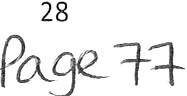 28
Page 77